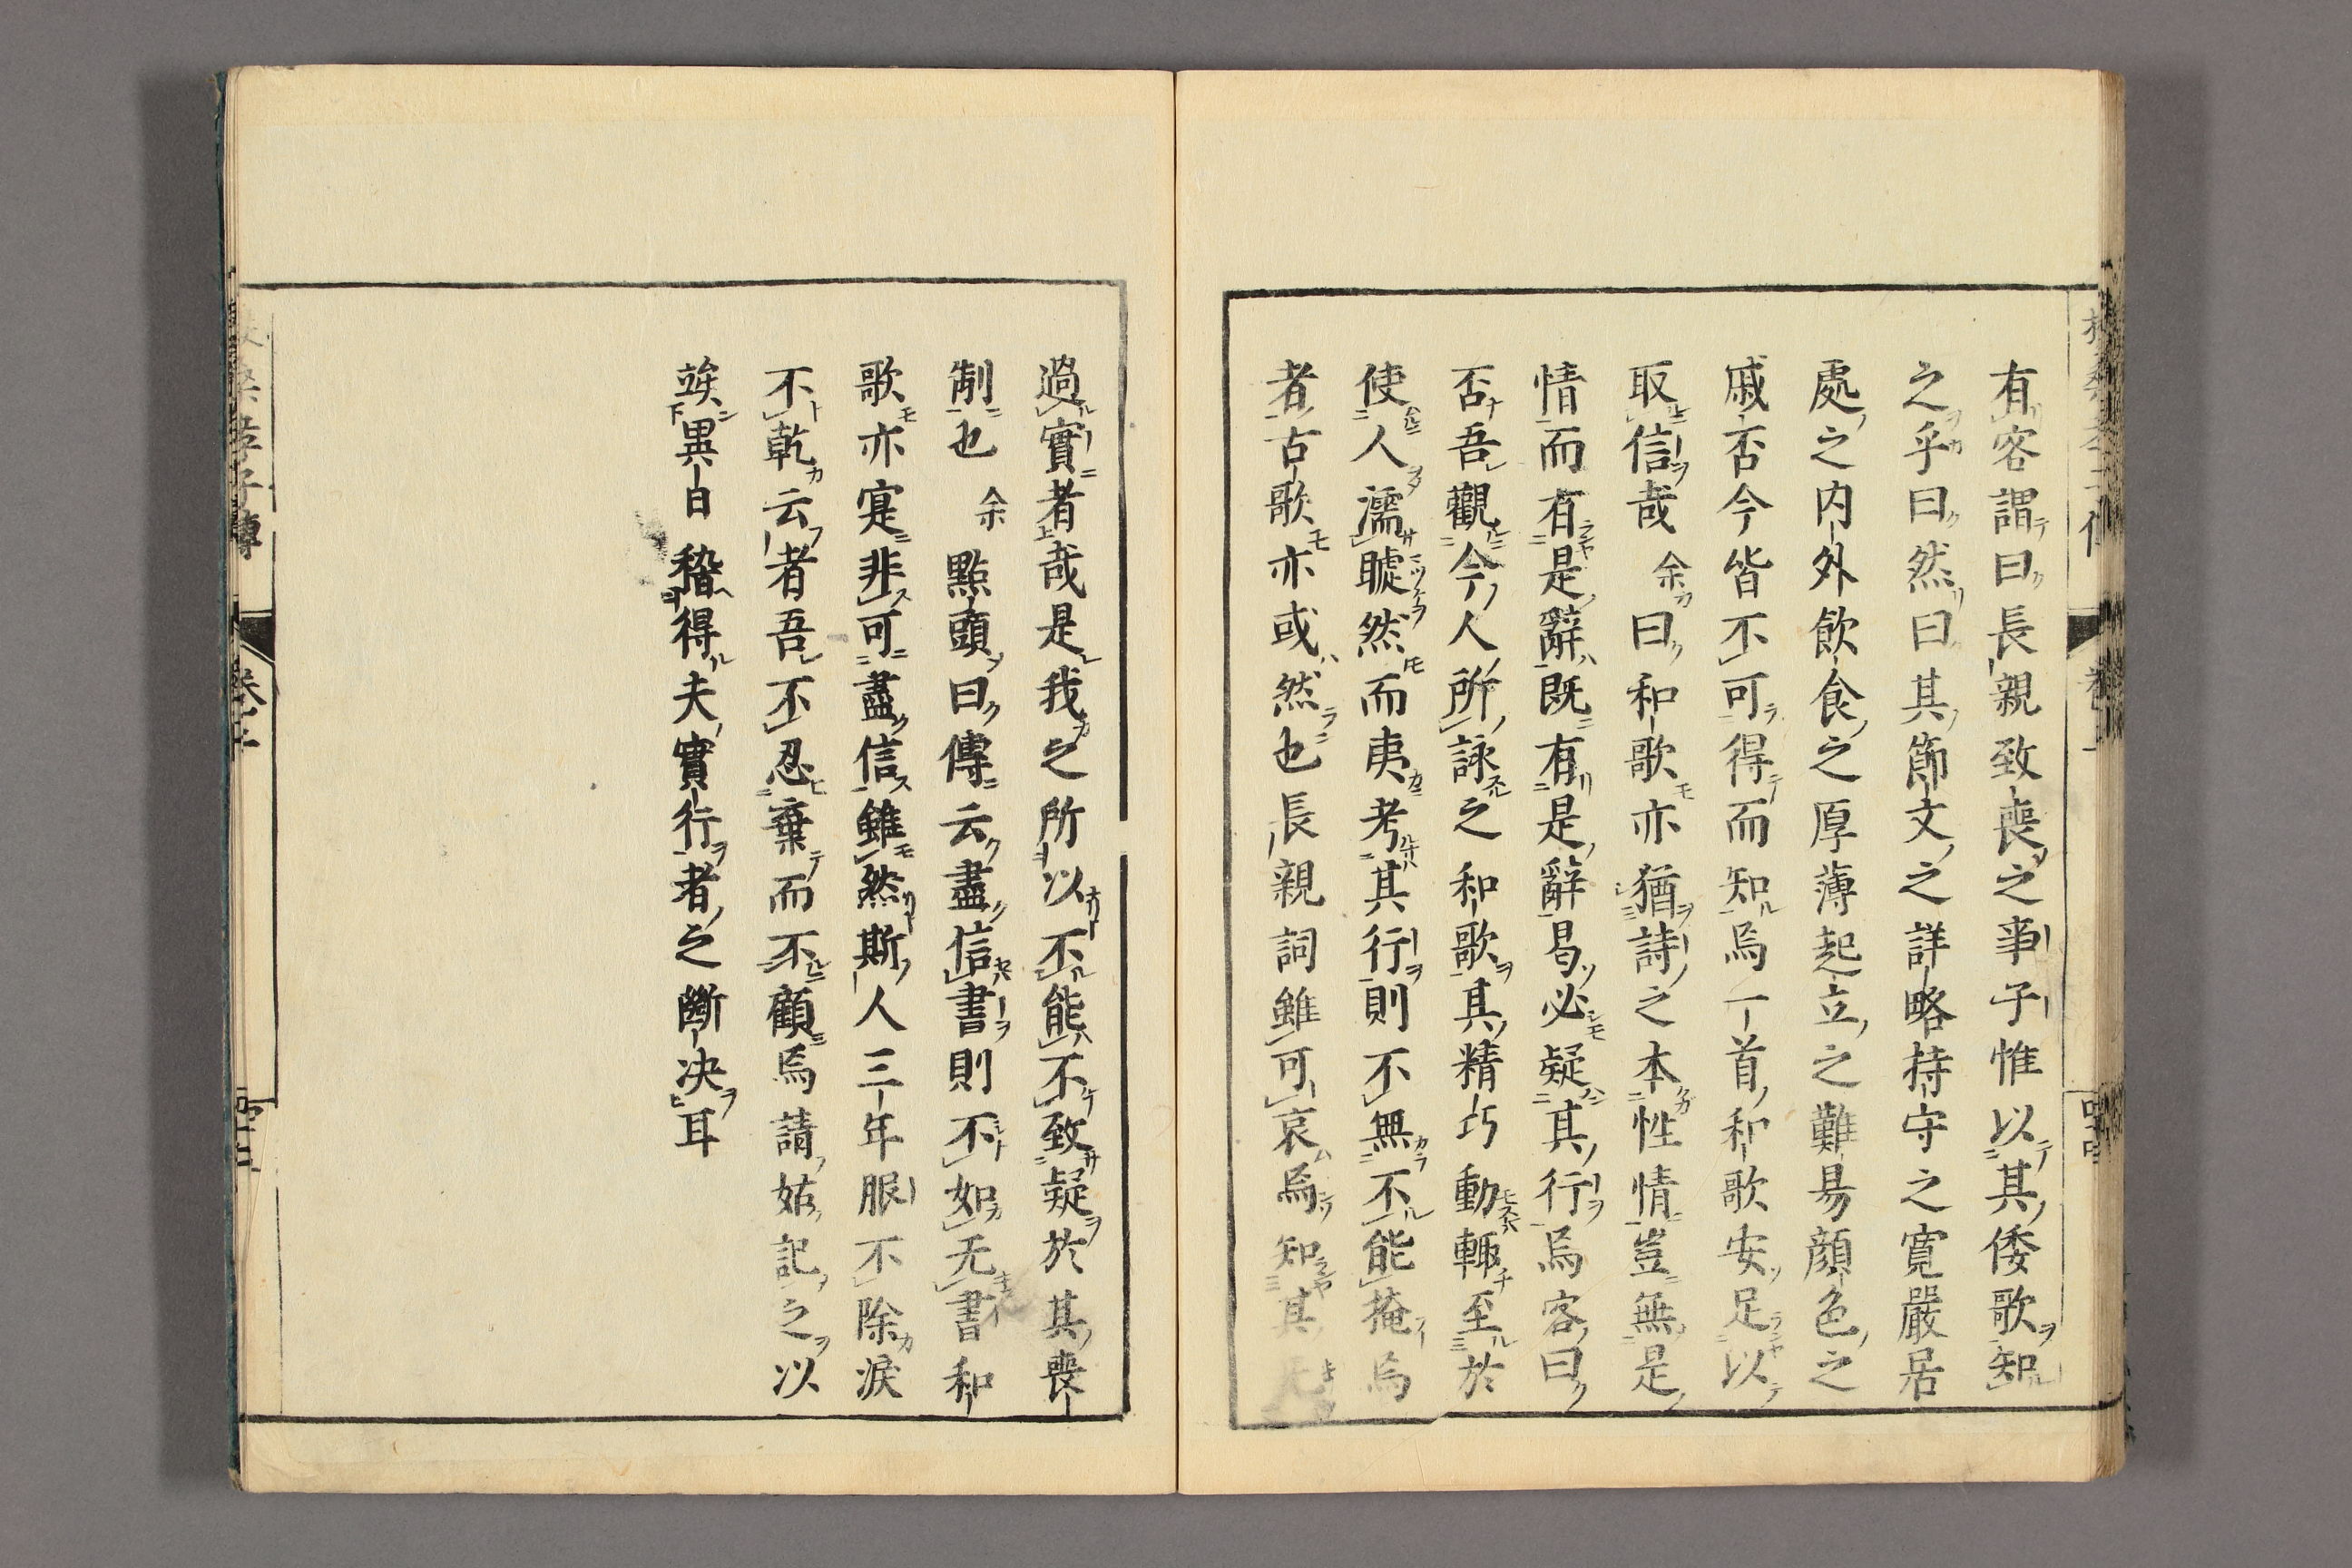 有客謂曰長親致喪之事子惟以其倭歌知
之乎曰然曰其節文之詳略持守之寬嚴居
處之内外飲食之厚薄起立之難易顔色之
戚否今皆不可得而知焉一首和歌安足以
取信哉余曰和歌亦猶詩之本性情豈無是
情而有是辭既有是辭曷必疑其行焉客曰
否吾觀今人所詠之和歌其精巧動輙至於
使人濡𥈠然而夷考其行則不無不能掩焉
者古歌亦或然也長親詞雖可哀焉知其
過實者哉是我之所以不能不致疑於其喪
制也余點頭曰傳云盡信書則不如无書和
歌亦寔非可盡信雖然斯人三年服不除涙
不乾云者吾不忍棄而不顧焉請姑記之以
竢異日稽得夫實行者之斷决耳
孝子傳
卷之